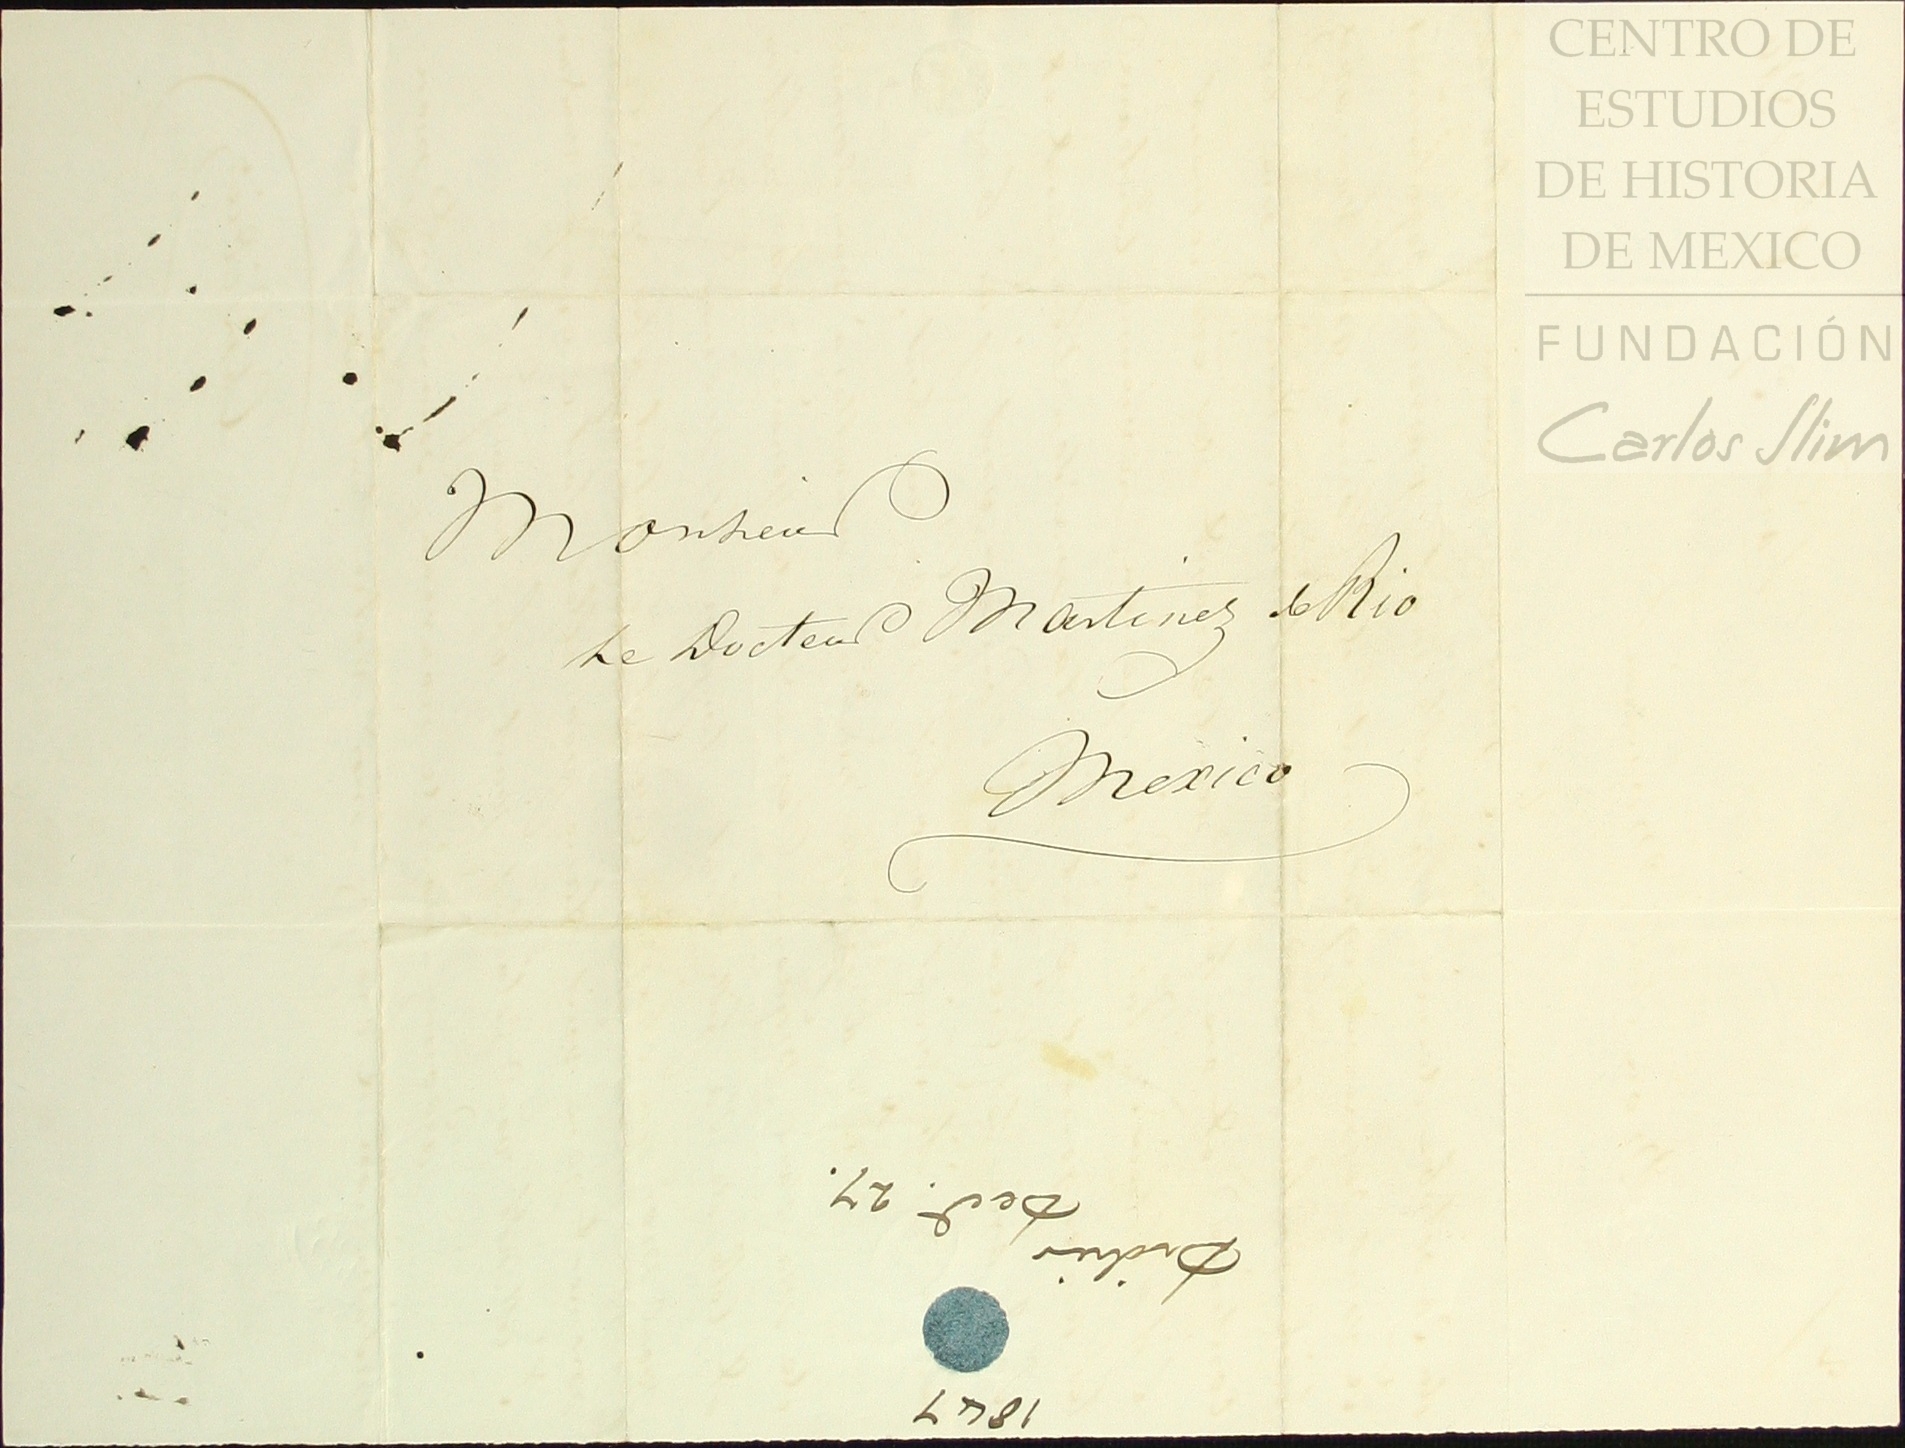 CENTRO DE
ESTUDIOS
DE HISTORIA
DE MEXICO
FUNDACIÓN
Carlos Slim
Monsieur
Le Docteur Martinez de Rio
Mexico
1847
Dect. 27.